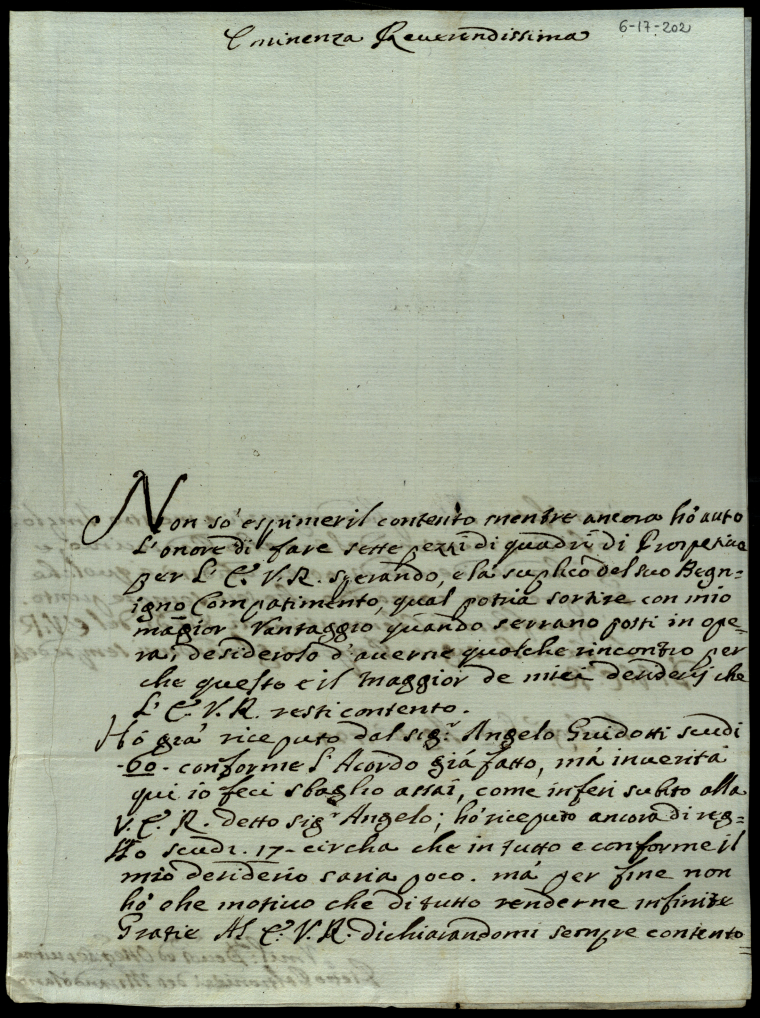 Eminenza Reuerendissima
6-17-202
Non so' esprimer il contento mentre ancora hò auto
L'onore di fare sette pezzi di quadri di Prospetiua
per L' E. V. R. sperando, e la suplico del suo Begn=
igno Compatimento, qual potria sortire con mio
maggior Vantaggio quando serrano posti in ope=
ra; desideroso d'auerne qualche rincontro per
che questo e il maggior de miei desiderij che
L' E. V. R. resti contento.
Hò gia' riceputo dal sig.r Angelo Guidotti scudi
-60- conforme L'Acordo già fatto, mà inuerità
qui io feci sbaglio assai, come inferi subito alla
V. E. R. detto sig.r Angelo; hò riceputo ancora di reg=
llo scudi. 17- circha che in tutto e conforme il
mio desiderio saria poco. mà per fine non
hò che motiuo che di tutto renderne infinite
Gratie Al E. V. R. dichiarandomi sempre contento